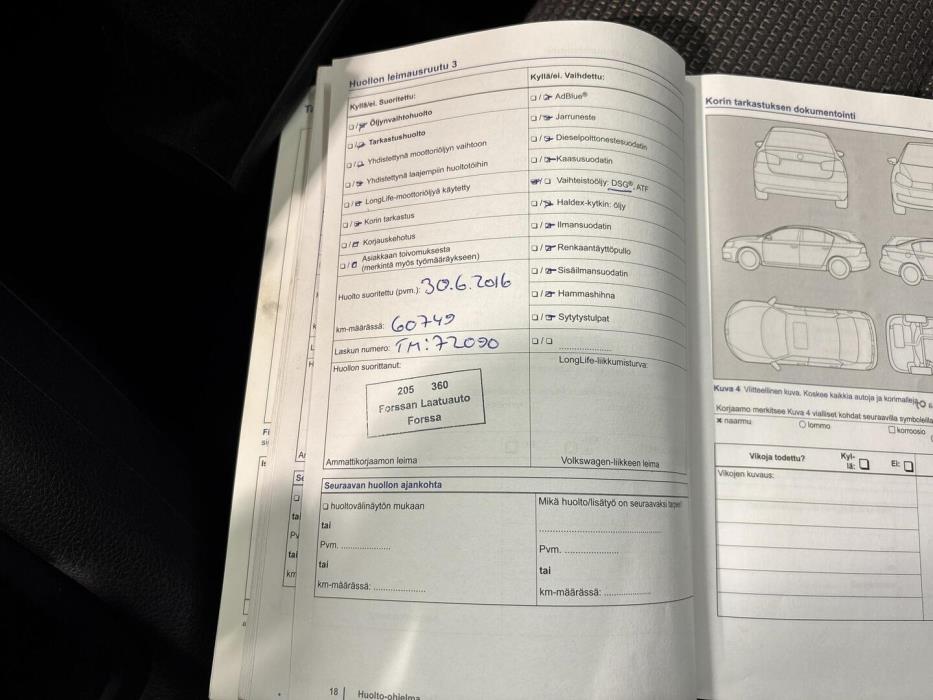 Huollon leimausruutu 3
Kyllä/ei. Suoritettu:
☐ / ☐ Öljynvaihtohuolto
☐ / ☐ Tarkastushuolto
☐ / ☐ Yhdistettynä moottoriöljyn vaihtoon
☐ / ☐ Yhdistettynä laajempiin huoltotöihin
☐ / ☐ LongLife-moottoriöljyä käytetty
☐ / ☐ Korin tarkastus
☐ / ☐ Korjauskehotus
☐ / ☐ Asiakkaan toivomuksesta
(merkintä myös työmääräykseen)
Huolto suoritettu (pvm.): 30.6.2016
km-määrässä: 60749
Laskun numero: TM:72090
Huollon suorittanut:
205 360
Forssan Laatuauto
Forssa
Ammattikorjaamon leima
Kyllä/ei. Vaihdettu:
☐ / ☐ AdBlue®
☐ / ☐ Jarruneste
☐ / ☐ Dieselpolttonestesuodatin
☐ / ☐ Kaasusuodatin
☐ / ☐ Vaihteistoöljy: DSG®, ATF
☐ / ☐ Haldex-kytkin: öljy
☐ / ☐ Ilmansuodatin
☐ / ☐ Renkaantäyttöpullo
☐ / ☐ Sisäilmansuodatin
☐ / ☐ Hammashihna
☐ / ☐ Sytytystulpat
☐ / ☐ ....................
LongLife-liikkumisturva:
Volkswagen-liikkeen leima
Seuraavan huollon ajankohta
☐ huoltovälinäytön mukaan
tai
Pvm. ....................
tai
km-määrässä: ....................
Mikä huolto/lisätyö on seuraavaksi tarpeen?
........................................
Pvm. ....................
tai
km-määrässä: ....................
18 | Huolto-ohjelma
Korin tarkastuksen dokumentointi
Kuva 4 Viitteellinen kuva. Koskee kaikkia autoja ja korimalleja
Korjaamo merkitsee Kuva 4 vialliset kohdat seuraavilla symboleilla
× naarmu
○ lommo
☐ korroosio
Vikoja todettu?
Kyl-
lä: ☐
Ei: ☐
Vikojen kuvaus: